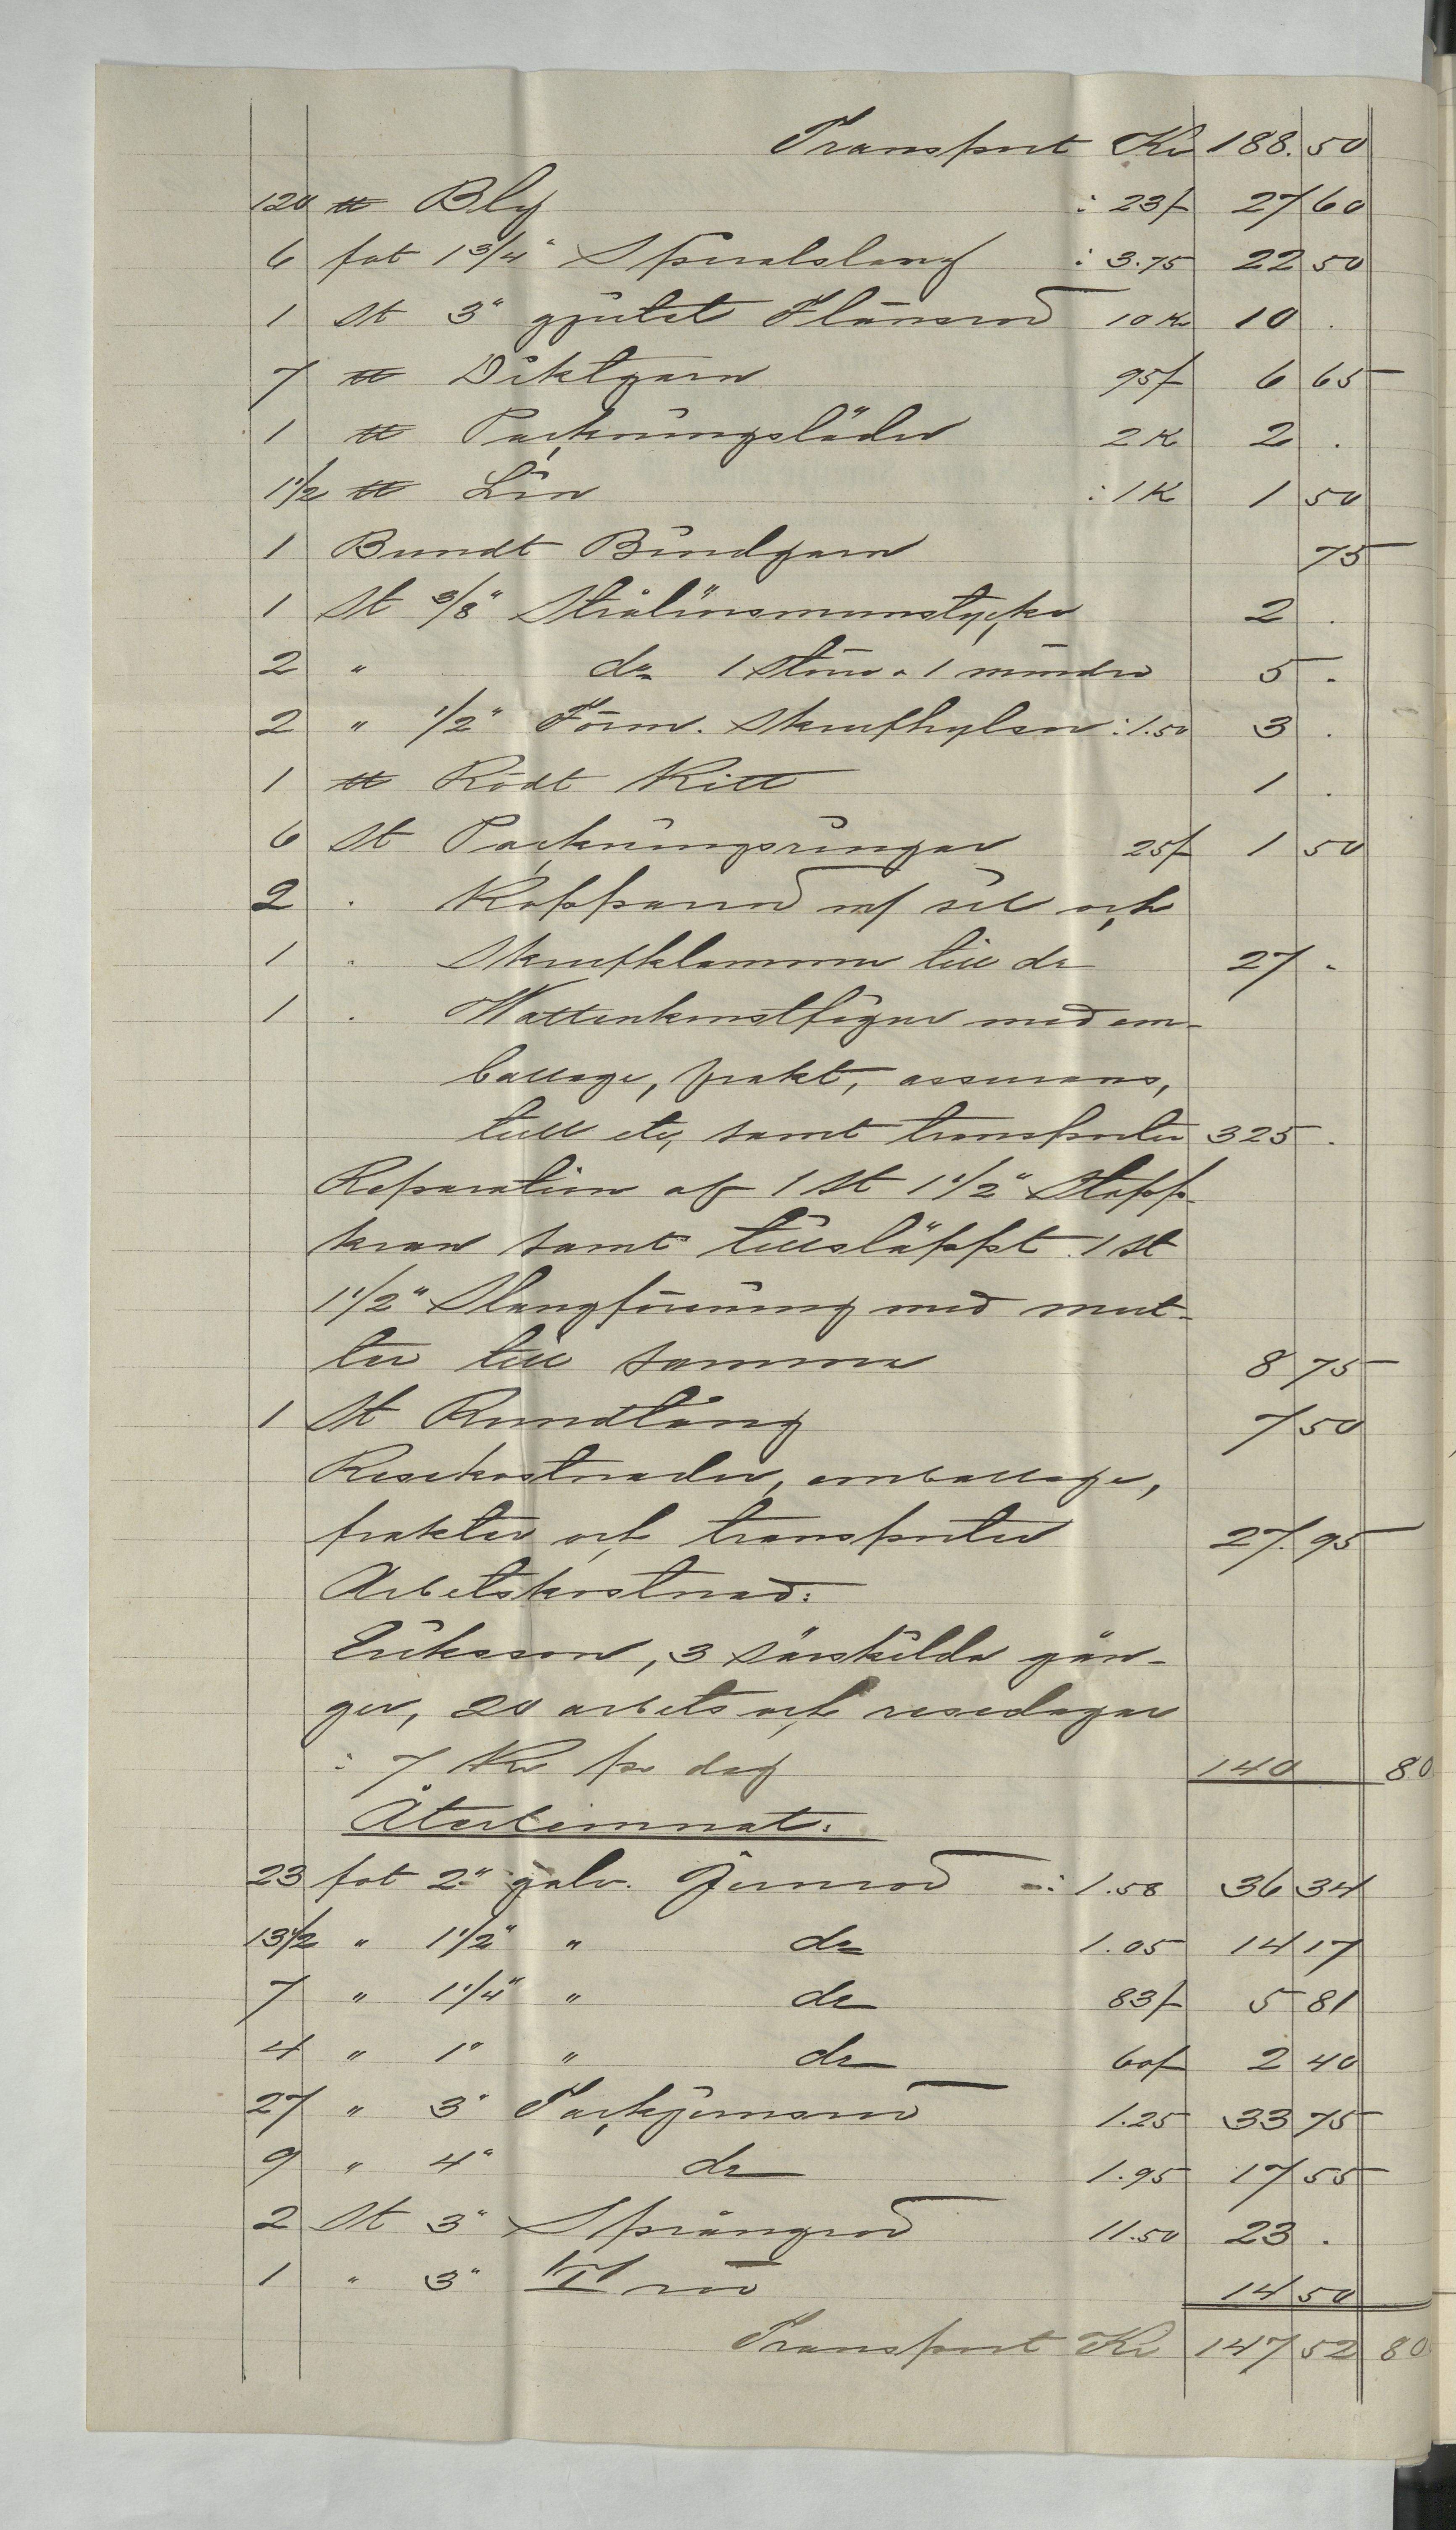 Transport Kr 188. 50
120 ℔ Bly : 23f 27 60
6 fot 1 3/4" Spiralslang : 3.75 22 50
1 st 3" gjutet Flänsrör 10 Kr 10 .
7 ℔ Diktgarn 95f 6 65
1 ℔ Packningsläder 2 K 2 .
1 1/2 ℔ Lin : 1 K 1 50
1 Bundt Bindgarn 75
1 st 3/8" Strålrörsmunstycke 2 .
2 " do 1 större o 1 mindre 5 .
2 " 1/2" Förm. Skrufhylsor : 1.50 3 .
1 ℔ Rödt Kitt 1 .
6 st Packningsringar 25f 1 50
2 . Kopparrör m/ sil och
1 . Skrufklamma till do 27 .
1 . Wattenkonstfigur med em-
ballage, frakt, assurans,
tull etc, samt transporter 325 .
Reparation af 1 st 1 1/2" Stopp-
kran samt tillsläppt 1 st
1 1/2" Slangförening med mut-
ter till samma 8 75
1 st Rundtång 7 50
Resekostnader, emballage,
frakter och transporter 27. 95
Arbetskostnad:
Eriksson, 3 särskilda gån-
ger, 20 arbets och resedagar
: 7 Kr pr dag 140 80
Återlemnat:
23 fot 2" galv. Jernrör : 1.58 36 34
13 1/2 " 1 1/2" " do 1.05 14 17
7 " 1 1/4" " do 83f 5 81
4 " 1" " do 60f 2 40
27 " 3" Tackjernsrör 1.25 33 75
9 " 4" do 1.95 17 55
2 st 3" Språngrör 11.50 23 .
1 " 3" T rör 14 50
Transport Kr 147 52 80